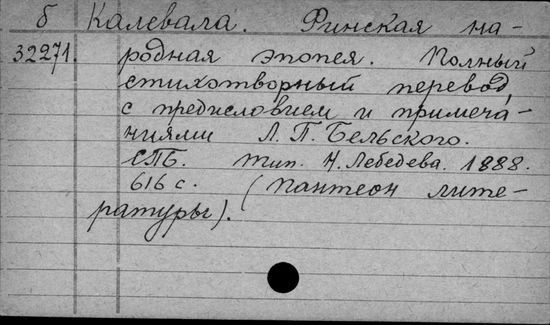 б Калевала. Финская на-
32271. родная эпопея. Полный
стихотворный перевод,
с предисловием и примеча-
ниями Л. П. Бельского.
СПБ. Тип. Н. Лебедева. 1888.
616 с. (Пантеон лите-
ратуры).